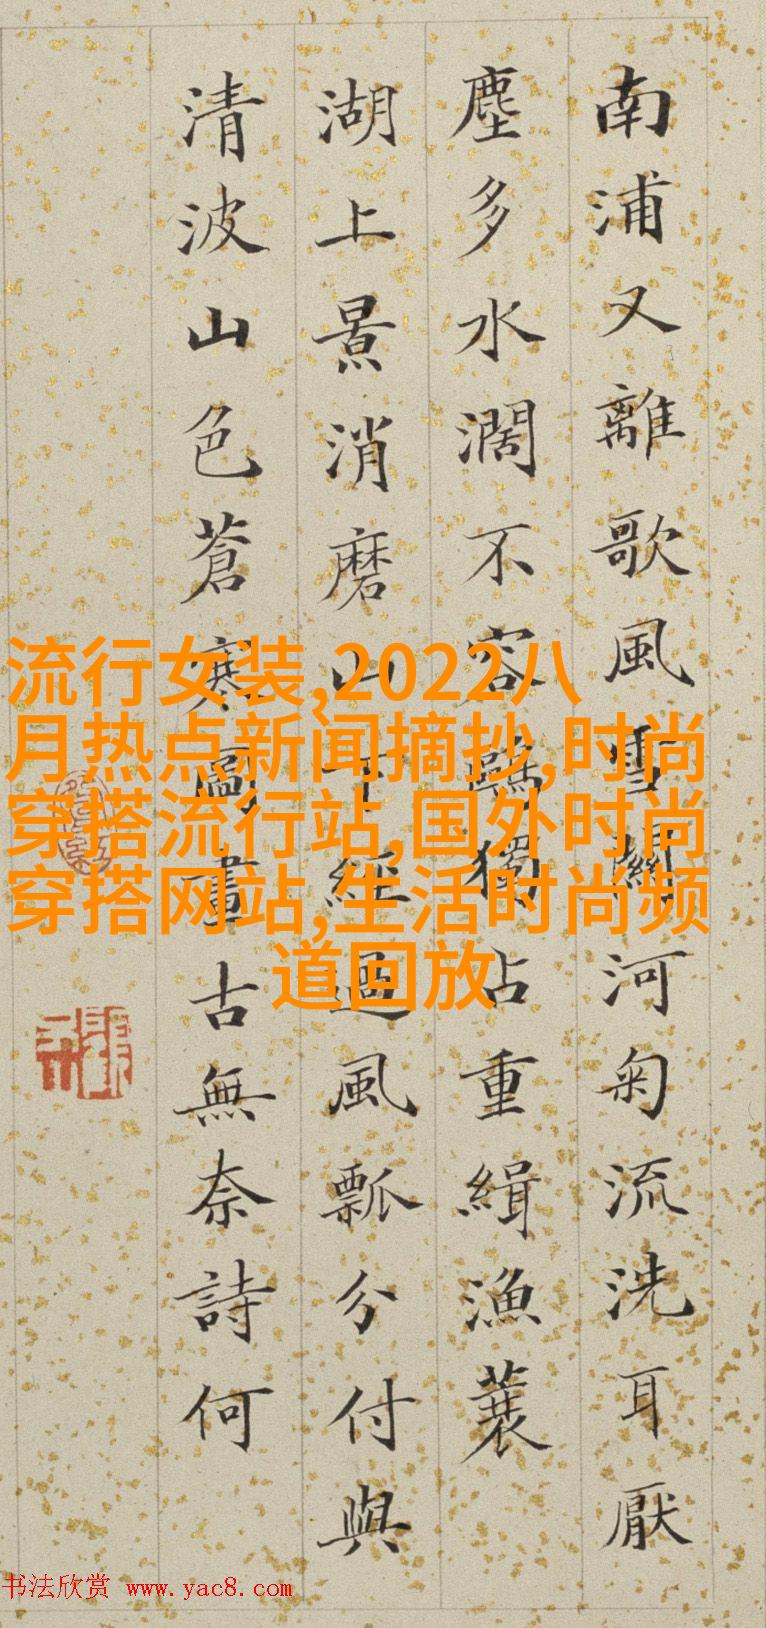 南浦又離歌風雪關河匊流洗耳厭
塵多水濶不容鷗獨占重緝漁蓑
湖上景消磨山下經過風瓢分付與
清波山色蒼寒圖畫古無奈詩何
流行女装,2022八
月热点新闻摘抄,时尚
穿搭流行站,国外时尚
穿搭网站,生活时尚频
道回放
书法欣赏 www.yac8.com